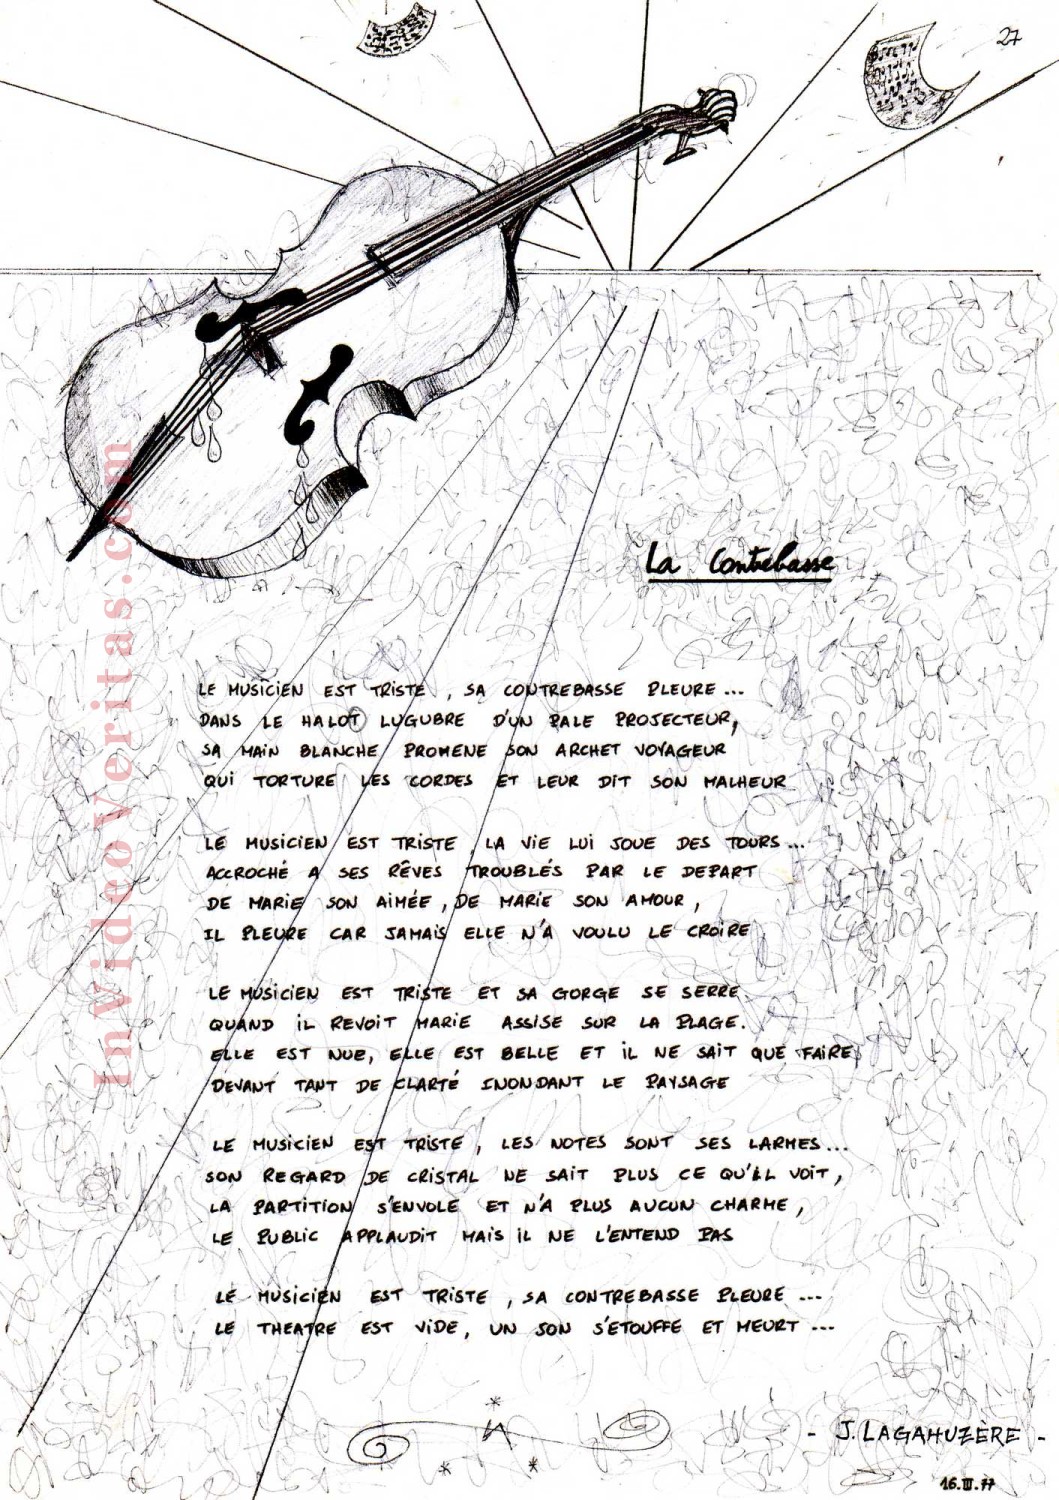 27
La Contrebasse
LE MUSICIEN EST TRISTE, SA CONTREBASSE PLEURE...
DANS LE HALOT LUGUBRE D'UN PALE PROJECTEUR,
SA MAIN BLANCHE PROMENE SON ARCHET VOYAGEUR
QUI TORTURE LES CORDES ET LEUR DIT SON MALHEUR
LE MUSICIEN EST TRISTE, LA VIE LUI JOUE DES TOURS...
ACCROCHÉ A SES RÊVES TROUBLÉS PAR LE DEPART
DE MARIE SON AIMÉE, DE MARIE SON AMOUR,
IL PLEURE CAR JAMAIS ELLE N'A VOULU LE CROIRE
LE MUSICIEN EST TRISTE ET SA GORGE SE SERRE
QUAND IL REVOIT MARIE ASSISE SUR LA PLAGE.
ELLE EST NUE, ELLE EST BELLE ET IL NE SAIT QUE FAIRE
DEVANT TANT DE CLARTÉ INONDANT LE PAYSAGE
LE MUSICIEN EST TRISTE, LES NOTES SONT SES LARMES...
SON REGARD DE CRISTAL NE SAIT PLUS CE QU'IL VOIT,
LA PARTITION S'ENVOLE ET N'A PLUS AUCUN CHARME,
LE PUBLIC APPLAUDIT MAIS IL NE L'ENTEND PAS
LE MUSICIEN EST TRISTE, SA CONTREBASSE PLEURE...
LE THEATRE EST VIDE, UN SON S'ETOUFFE ET MEURT...
- J. LAGAHUZÈRE -
16.III.77
InVideoVeritas.com